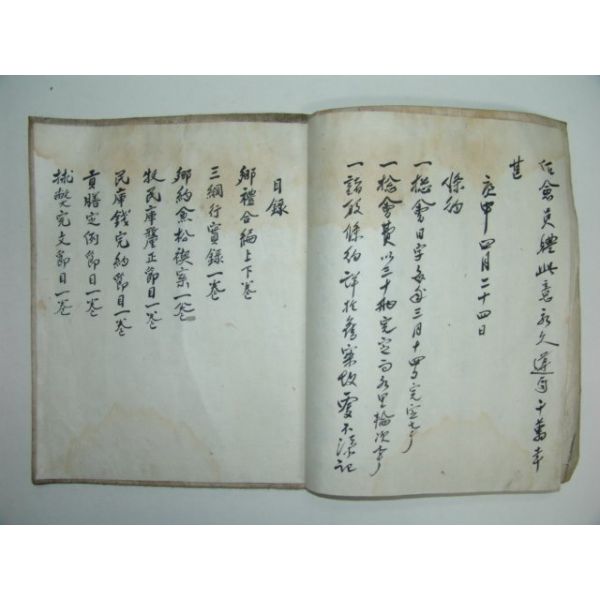 僉會員軆此意永久遵守千萬幸
甚
庚申四月二十四日
條約
一總會日字每年三月十四日完定事
一總會費以三十兩完定而各里輪次事
一諸般條約詳於舊案故更不添記
目錄
鄕禮合編上下卷
三綱行實錄一卷
鄕約食松禊案一卷
牧民庫釐正節目一卷
民庫錢完約節目一卷
貢膳定例節目一卷
完文節目一卷